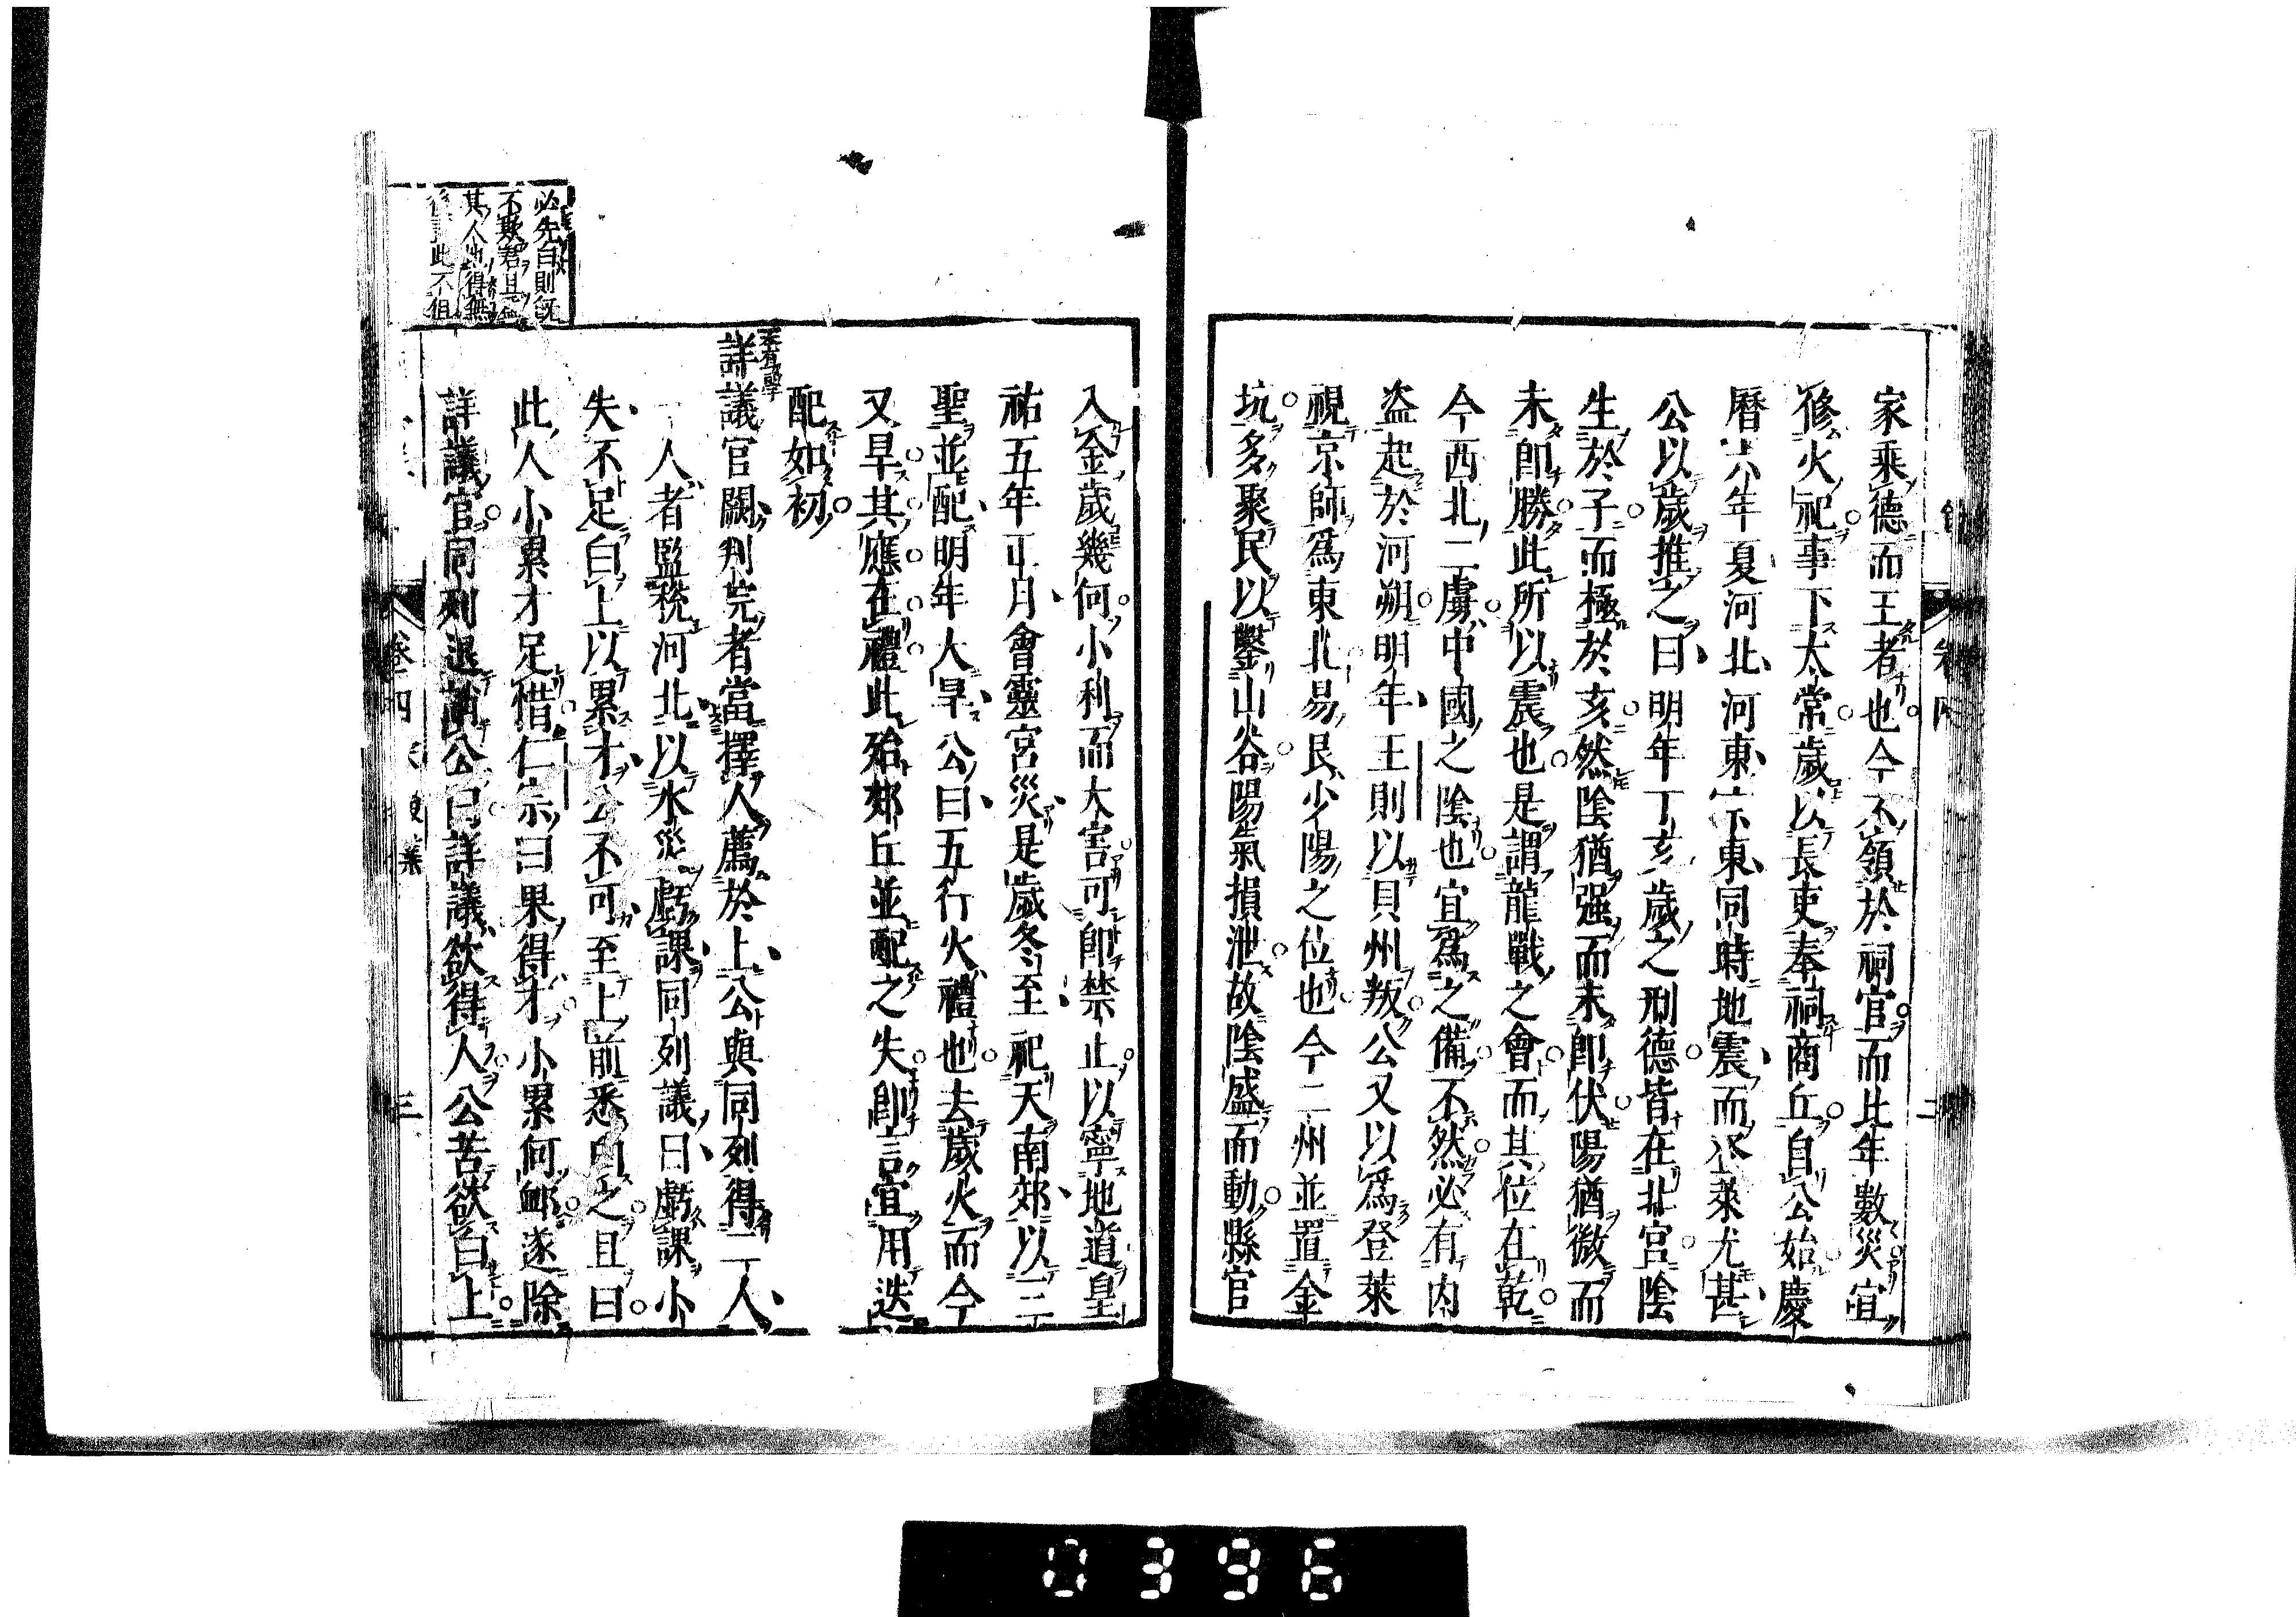 家乘德而王者也今不領於祠官而比年數災宜
修火祀事下太常歲以長吏奉祠商丘自公始慶
曆六年夏河北河東京東同時地震而登萊尤甚
公以歲推之曰明年丁亥歲之刑德皆在北宮陰
生於子而極於亥然陰猶强而未即伏陽猶微而
未即勝此所以震也是謂龍戰之會而其位在乾
今西北二虜中國之陰也宜爲之備不然必有内
盗起於河朔明年王則以貝州叛公又以爲登萊
視京師爲東北易艮少陽之位也今二州並置金
坑多聚民以鑿山谷陽氣損泄故陰盛而動縣官
入金歲幾何小利而大害可即禁止以寧地道皇
祐五年正月會靈宮災是歲冬至祀天南郊以三
聖並配明年大旱公曰五行火禮也去歲火而今
又旱其應在禮此殆郊丘並配之失即言宜用迭
配如初
詳議官闕判院者當擇人薦於上公與同列得二人
一人者監税河北以水災虧課同列議曰虧課小
失不足白上以累才公不可至上前悉白之且曰
此人小累才足惜仁宗曰果得才小累何䘏遂除
詳議官同列退誚公曰詳議欲得人公苦欲白上
必先白則既
不欺君且無
其人也得無
此不但
卷四
三
二